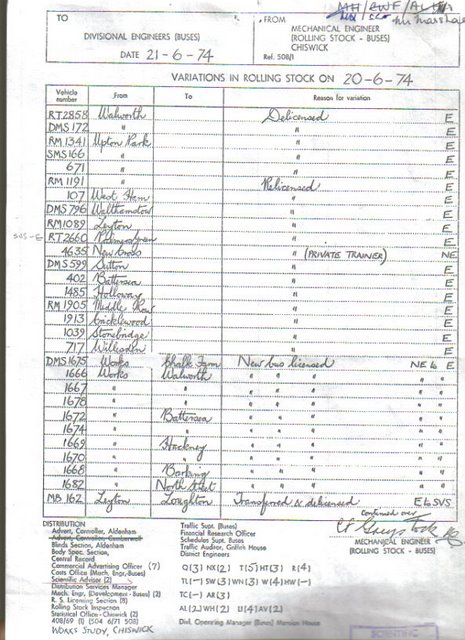 MH/BWF/
Mr Marshall
TO
DIVISIONAL ENGINEERS (BUSES)
DATE 21-6-74
FROM
MECHANICAL ENGINEER
(ROLLING STOCK - BUSES)
CHISWICK
Ref. 508/1
VARIATIONS IN ROLLING STOCK ON 20-6-74
Vehicle number From To Reason for variation
RT2858 Walworth Delicensed E
DMS 172 " " E
RM 1341 Upton Park " E
SMS 166 " " E
671 " " E
RM 1191 " Relicensed E
107 West Ham " E
DMS 796 Walthamstow " E
RM1089 Leyton " E
SUS-E RT2660 Palmers Green " E
4635 New Cross " (PRIVATE TRAINER) NE
DMS 599 Sutton " E
402 Battersea " E
1485 Holloway " E
RM 1905 Middle Row " E
1913 Cricklewood " E
1039 Stonebridge " E
717 Willesden " E
DMS 1675 Works Chalk Farm New bus licensed NE to E
1666 Works Walworth " " " " "
1667 " " " " " " "
1678 " " " " " " "
1672 " Battersea " " " " "
1674 " " " " " " "
1669 " Hackney " " " " "
1670 " " " " " " "
1668 " Barking " " " " "
1682 " North Street " " " " "
MB 162 Leyton Loughton Transferred & delicensed E to SUS
continued over
MECHANICAL ENGINEER
(ROLLING STOCK - BUSES)
DISTRIBUTION
Advert. Controller, Aldenham
Advert. Controller, Camberwell
Blinds Section, Aldenham
Body Spec. Section,
Central Record
Commercial Advertising Officer (7)
Costs Office (Mech. Engr. Buses)
Scientific Adviser (2)
Distribution Services Manager
Mech. Engr. (Development - Buses) (2)
R. S. Licensing Section (8)
Rolling Stock Inspection
Statistical Office - Chiswick (2)
408/69 (1) (504 6/71 508)
WORKS STUDY, CHISWICK
Traffic Supt. (Buses)
Financial Research Officer
Schedules Supt. Buses
Traffic Auditor, Griffith House
District Engineers
Q(3) NX(2) T(5) HT(3) R(4)
TL(-) SW(3) WN(3) W(4) HW(-)
TC(-) AR(3)
AL(2) WH(2) U(4) AV(2)
Divl. Operating Manager (Buses) Mansion House